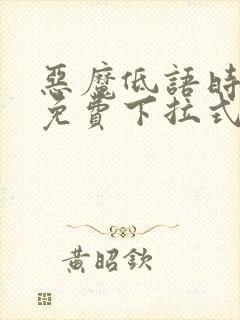 惡魔低語時
免費下拉式
黃昭欽